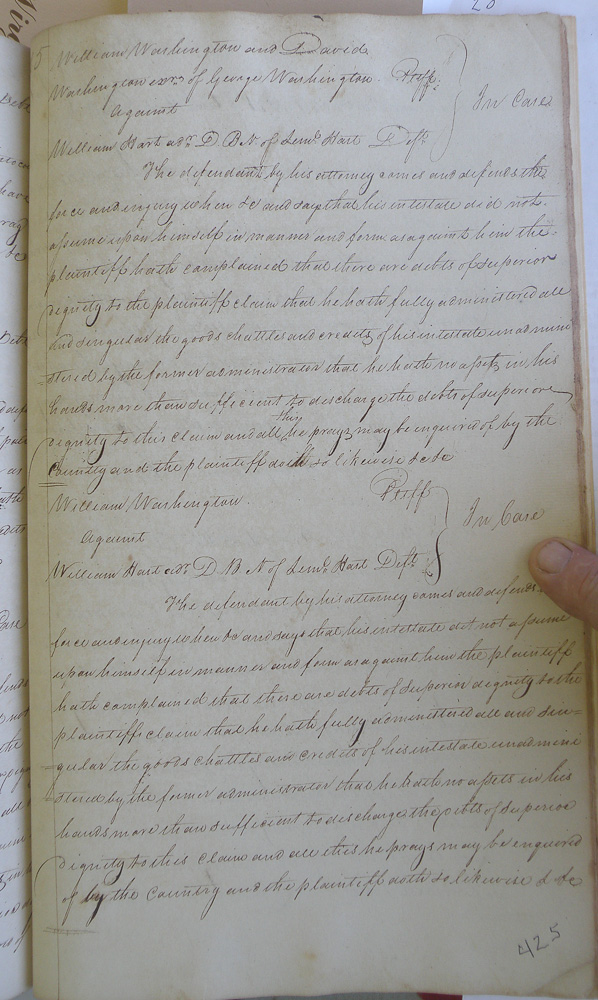 William Washington and David
Washington exrs of George Washington. Pltffs
against In Case
William Hart adr D. B. N of Leml Hart Deft
The defendant by his attorney comes and defends the
force and injury when &c and says that his intestate did not
assume upon himself in manner and form as against him the
plaintiff hath complained that there are debts of superior
dignity to the plaintiff claim that he hath fully administered all
and singular the goods chattles and credits of his intestate unadmini
=stered by the former administrator that he hath no assets in his
hands more than sufficient to discharge the debts of superior
dignity to this claim and all this he prays may be inquired of by the
Country and the plaintiff doth so likewise &c &c
William Washington. Pltff
against In Case
William Hart exr D B N of Leml Hart Deft
The defendant by his attorney comes and defends
force and injury when &c and says that his intestate did not assume
upon himself in manner and form as against him the plaintiff
hath complained that there are debts of superior dignity to the
plaintiffs claim that he hath fully administered all and sin=
=gular the goods chattles and credits of his intestate unadmini
=stered by the former administrator that he hath no assets in his
hands more than sufficient to discharge the debts of superior
dignity to this claim and all this he prays may be enquired
of by the Country and the plaintiff doth so likewise & &c
425